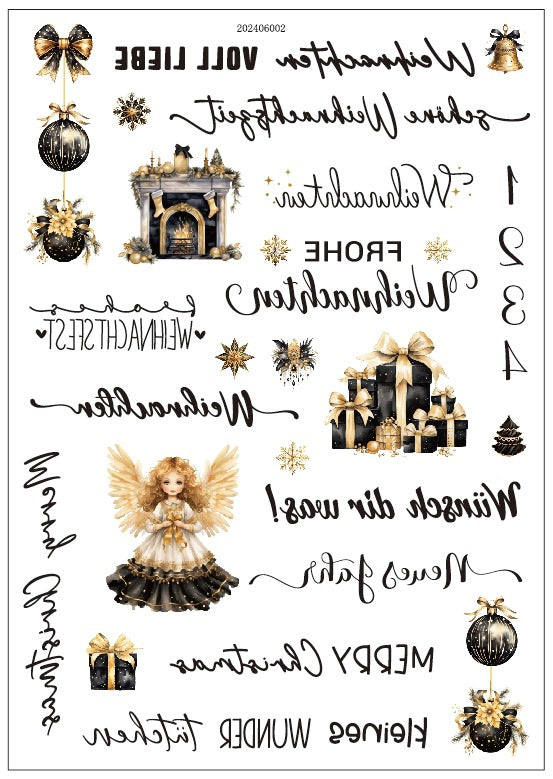 202406002
Weihnachten VOLL LIEBE
schöne Weihnachtszeit
Weihnachten
1
2
3
4
FROHE
Weihnachten
Frohes
WEIHNACHTSFEST
Weihnachten
Wünsch dir was!
Neues Jahr
Merry Christmas
MERRY Christmas
kleines WUNDER tütchen